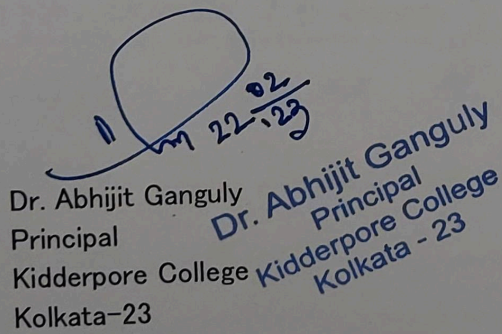 22.02.23
Dr. Abhijit Ganguly
Principal
Kidderpore College
Kolkata-23
Dr. Abhijit Ganguly
Principal
Kidderpore College
Kolkata - 23